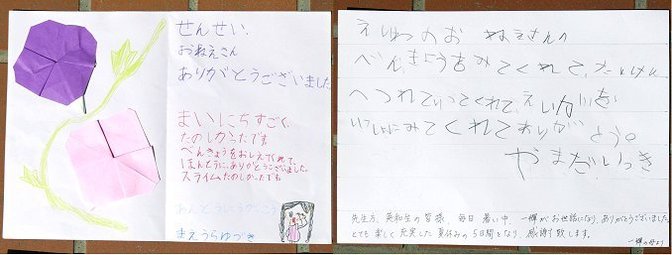 せんせい、
おねえさん
ありがとうございました
まいにちすごく
たのしかったです
べんきょうをおしえてくれて、
ほんとうに、ありがとうございました。
スライムたのしかったです
まえうらゆづき
えいわのお ねえさんへ
べんきょうをみてくれて、たいいくかん
へつれていってくれて、えいがを
いっしょにみてくれてありがとう。
やまだいつき
先生方、英和生の皆様 毎日 暑い中、一輝がお世話になり、ありがとうございました。
とても楽しく充実した夏休みの5日間となり 感謝致します。
一輝の母より